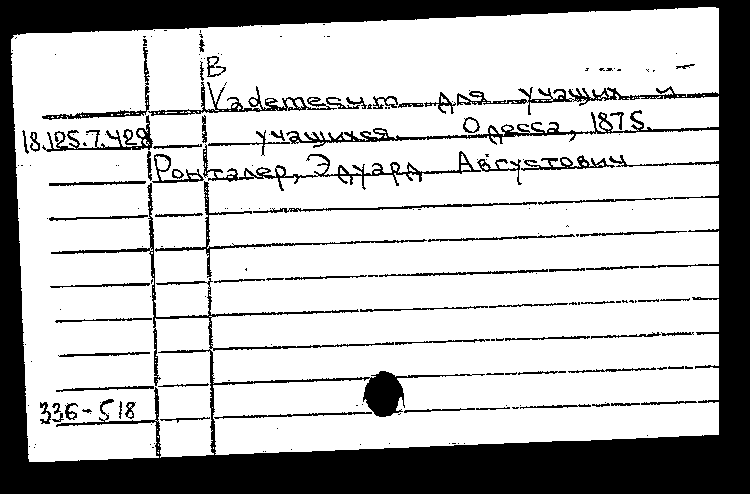 В
Vademecum для учащих и
18.125.7.428 учащихся. Одесса, 1875.
Ронталер, Эдуард Августович
336-518